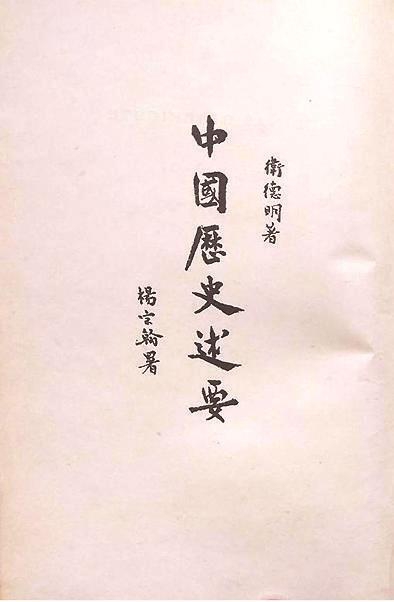 衛德明著
中國歷史述要
楊宗翰署